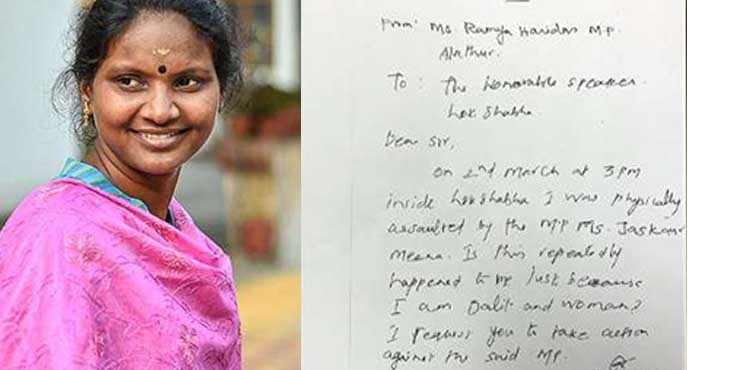 From: Ms Ramya Haridas M.P.
Alathur.
To: The honorable speaker.
Lok Shabha.
Dear Sir,
On 2nd March at 3 PM
inside Lokshabha I was physically
assaulted by the MP Ms. Jaskaur
Meena. Is this repeatedly
happened to me Just because
I am Dalit and woman?
I request you to take action
against the said MP.